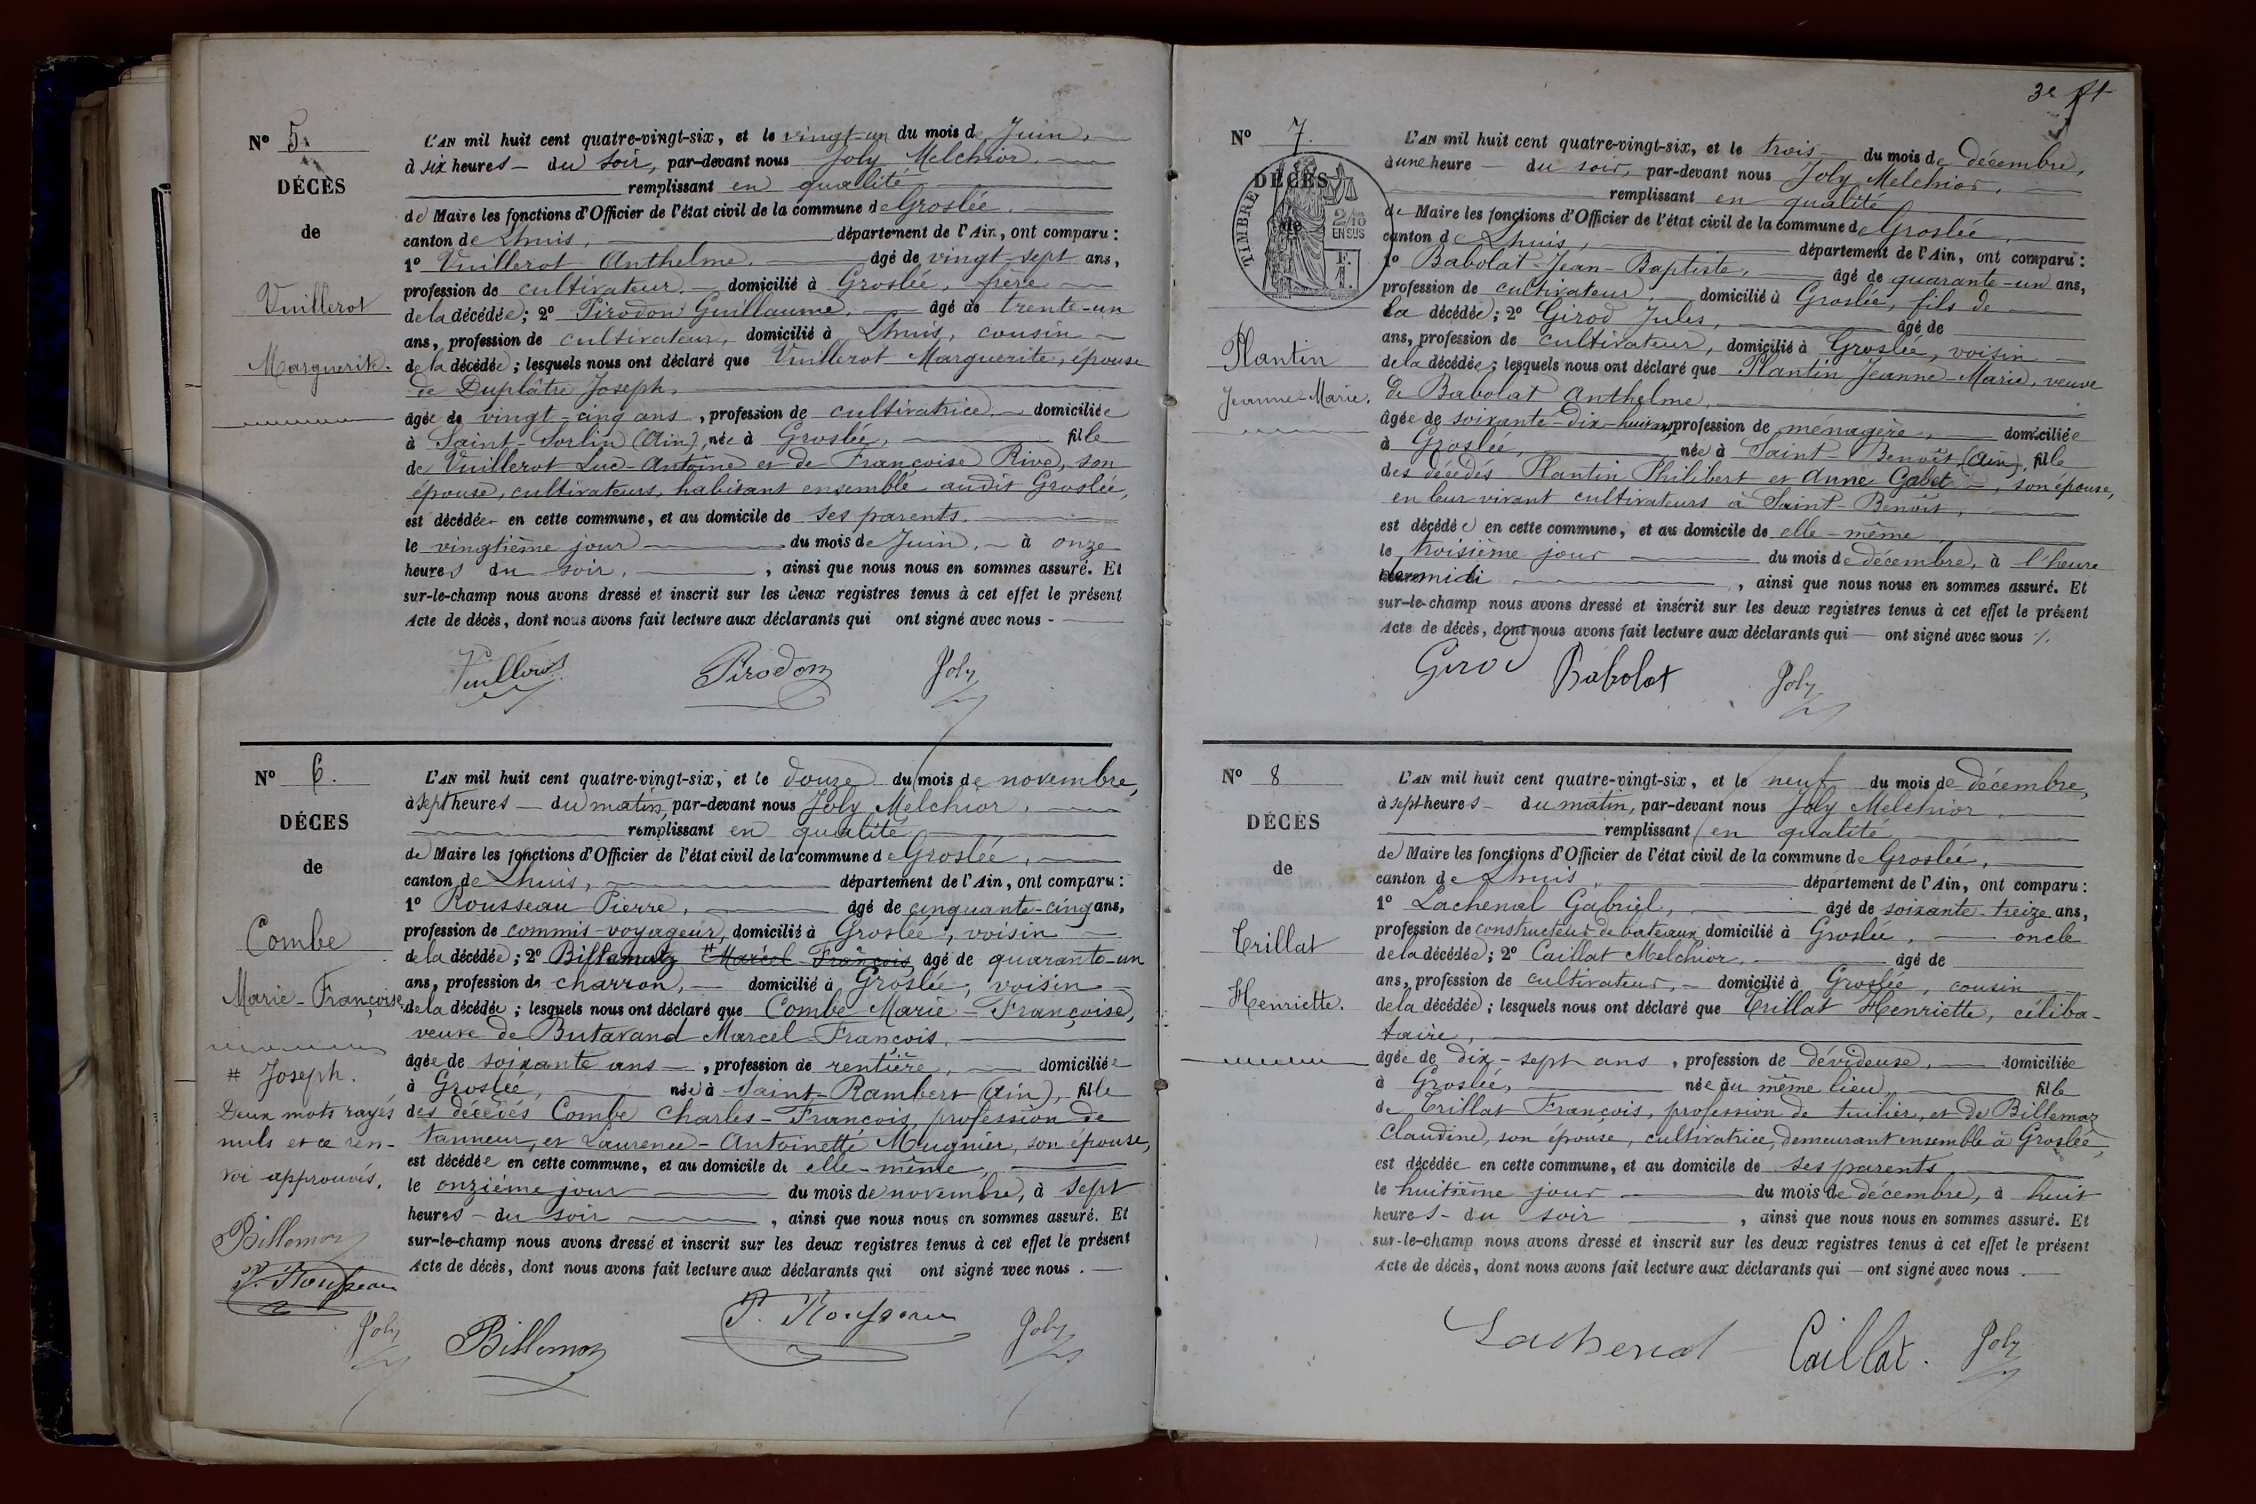 N° 5.
DÉCÈS
de
Vuillerot
Marguerite.
L'AN mil huit cent quatre-vingt-six, et le vingt-un du mois de Juin,
à six heures du soir, par-devant nous Joly Melchior,
remplissant en qualité
de Maire les fonctions d'Officier de l'état civil de la commune de Groslée,
canton de Lhuis, département de l'Ain, ont comparu :
1° Vuillerot Anthelme, âgé de vingt-sept ans,
profession de cultivateur, domicilié à Groslée, frère
de la décédée; 2° Pirodon Guillaume, âgé de trente-un
ans, profession de cultivateur, domicilié à Lhuis, cousin
de la décédée; lesquels nous ont déclaré que Vuillerot Marguerite, épouse
de Duplâtre Joseph,
âgée de vingt-cinq ans, profession de cultivatrice, domiciliée
à Saint-Sorlin (Ain), née à Groslée, fille
de Vuillerot Luc-Antoine et de Françoise Rive, son
épouse, cultivateurs, habitant ensemble audit Groslée,
est décédée en cette commune, et au domicile de ses parents.
le vingtième jour du mois de Juin, à onze
heures du soir, ainsi que nous nous en sommes assuré. Et
sur-le-champ nous avons dressé et inscrit sur les deux registres tenus à cet effet le présent
Acte de décès, dont nous avons fait lecture aux déclarants qui ont signé avec nous -
Vuillerot Pirodon Joly
N° 6.
DÉCES
de
Combe
Marie-Françoise,
# Joseph.
Deux mots rayés
nuls et ce ren-
voi approuvés.
Billemoz
P. Rousseau
Joly
L'AN mil huit cent quatre-vingt-six, et le douze du mois de novembre,
à sept heures du matin, par-devant nous Joly Melchior,
remplissant en qualité
de Maire les fonctions d'Officier de l'état civil de la commune de Groslée,
canton de Lhuis, département de l'Ain, ont comparu :
1° Rousseau Pierre, âgé de cinquante-cinq ans,
profession de commis-voyageur, domicilié à Groslée, voisin
de la décédée; 2° Billemaz # Marcel François âgé de quarante-un
ans, profession de charron, domicilié à Groslée, voisin
de la décédée; lesquels nous ont déclaré que Combe Marie-Françoise,
veuve de Butavand Marcel-François,
âgée de soixante ans, profession de rentière, domiciliée
à Groslée, née à Saint-Rambert (Ain), fille
des décédés Combe Charles-François, profession de
tanneur, et Laurence-Antoinette Mugnier, son épouse,
est décédée en cette commune, et au domicile de elle-même,
le onzième jour du mois de novembre, à sept
heures du soir, ainsi que nous nous en sommes assuré. Et
sur-le-champ nous avons dressé et inscrit sur les deux registres tenus à cet effet le présent
Acte de décès, dont nous avons fait lecture aux déclarants qui ont signé avec nous.
Billemoz P. Rousseau Joly
3e ft
N° 7.
DÉCÈS
de
TIMBRE
2/10
EN SUS
Plantin
Jeanne-Marie.
L'AN mil huit cent quatre-vingt-six, et le trois du mois de décembre,
à une heure du soir, par-devant nous Joly Melchior,
remplissant en qualité
de Maire les fonctions d'Officier de l'état civil de la commune de Groslée,
canton de Lhuis, département de l'Ain, ont comparu :
1° Babolat Jean-Baptiste, âgé de quarante-un ans,
profession de cultivateur, domicilié à Groslée, fils de
la décédée; 2° Girod Jules, âgé de
ans, profession de cultivateur, domicilié à Groslée, voisin
de la décédée; lesquels nous ont déclaré que Plantin Jeanne-Marie, veuve
de Babolat Anthelme,
âgée de soixante-dix-huit ans, profession de menagère, domiciliée
à Groslée, née à Saint-Benoît (Ain), fille
des décédés Plantin Philibert et Anne Gabet, son épouse,
en leur vivant cultivateurs à Saint-Benoît,
est décédée en cette commune, et au domicile de elle-même
le troisième jour du mois de décembre, à l'heure
de midi, ainsi que nous nous en sommes assuré. Et
sur-le-champ nous avons dressé et inscrit sur les deux registres tenus à cet effet le présent
Acte de décès, dont nous avons fait lecture aux déclarants qui ont signé avec nous
Girod Babolat Joly
N° 8
DÉCÈS
de
Trillat
Henriette.
L'AN mil huit cent quatre-vingt-six, et le neuf du mois de décembre,
à sept heures du matin, par-devant nous Joly Melchior
remplissant en qualité
de Maire les fonctions d'Officier de l'état civil de la commune de Groslée,
canton de Lhuis, département de l'Ain, ont comparu :
1° Lachenal Gabriel, âgé de soixante-treize ans,
profession de constructeur de bateaux domicilié à Groslée, oncle
de la décédée; 2° Caillat Melchior, âgé de
ans, profession de cultivateur, domicilié à Groslée, cousin
de la décédée; lesquels nous ont déclaré que Trillat Henriette, céliba-
taire,
âgée de dix-sept ans, profession de dévideuse, domiciliée
à Groslée, née au même lieu, fille
de Trillat François, profession de tuilier, et de Billemaz
Claudine, son épouse, cultivatrice, demeurant ensemble à Groslée,
est décédée en cette commune, et au domicile de ses parents
le huitième jour du mois de décembre, à huit
heures du soir, ainsi que nous nous en sommes assuré. Et
sur-le-champ nous avons dressé et inscrit sur les deux registres tenus à cet effet le présent
Acte de décès, dont nous avons fait lecture aux déclarants qui ont signé avec nous.
Lachenal Caillat. Joly